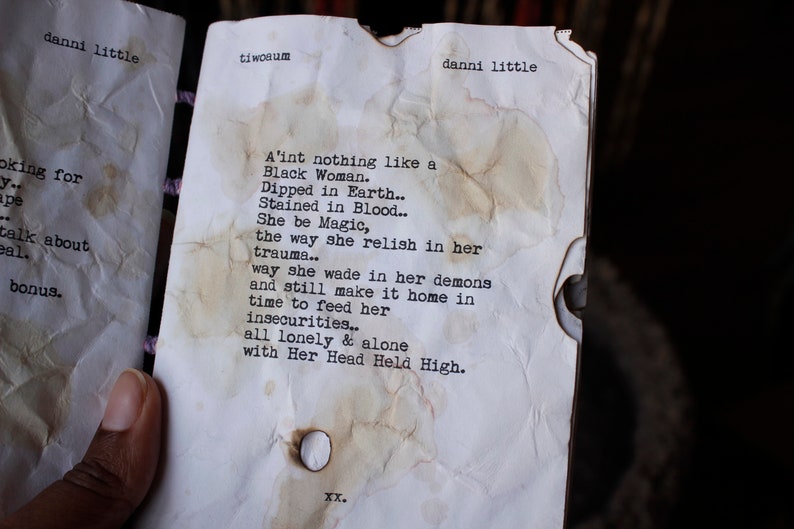 danni little
oking for
y..
ape
..
talk about
eal.
bonus.
tiwoaum
danni little
A'int nothing like a
Black Woman.
Dipped in Earth..
Stained in Blood..
She be Magic,
the way she relish in her
trauma..
way she wade in her demons
and still make it home in
time to feed her
insecurities..
all lonely & alone
with Her Head Held High.
xx.